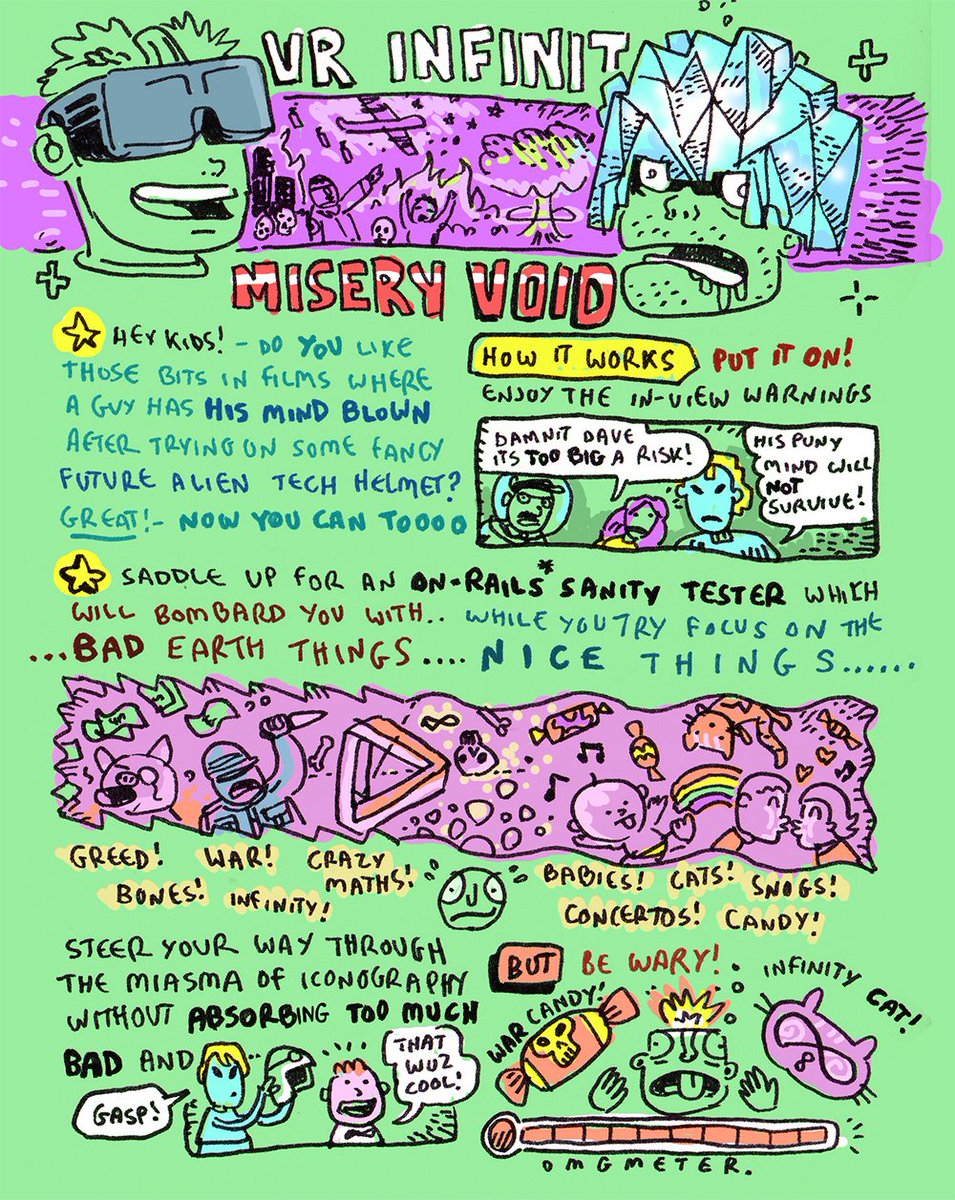 VR INFINIT
MISERY VOID
HEY KIDS! - DO YOU LIKE
THOSE BITS IN FILMS WHERE
A GUY HAS HIS MIND BLOWN
AFTER TRYING ON SOME FANCY
FUTURE ALIEN TECH HELMET?
GREAT! - NOW YOU CAN TOOOO
HOW IT WORKS PUT IT ON!
ENJOY THE IN-VIEW WARNINGS
DAMNIT DAVE
ITS TOO BIG A RISK!
HIS PUNY
MIND WILL
NOT
SURVIVE!
SADDLE UP FOR AN ON-RAILS* SANITY TESTER WHICH
WILL BOMBARD YOU WITH.. WHILE YOU TRY FOCUS ON THE
...BAD EARTH THINGS.... NICE THINGS......
GREED! WAR! CRAZY
MATHS!
BONES! INFINITY!
BABIES! CATS! SNOGS!
CONCERTOS! CANDY!
STEER YOUR WAY THROUGH
THE MIASMA OF ICONOGRAPHY
WITHOUT ABSORBING TOO MUCH
BAD AND...
GASP!
THAT
WUZ
COOL!
BUT BE WARY!
WAR CANDY!
INFINITY CAT!
OMGMETER.